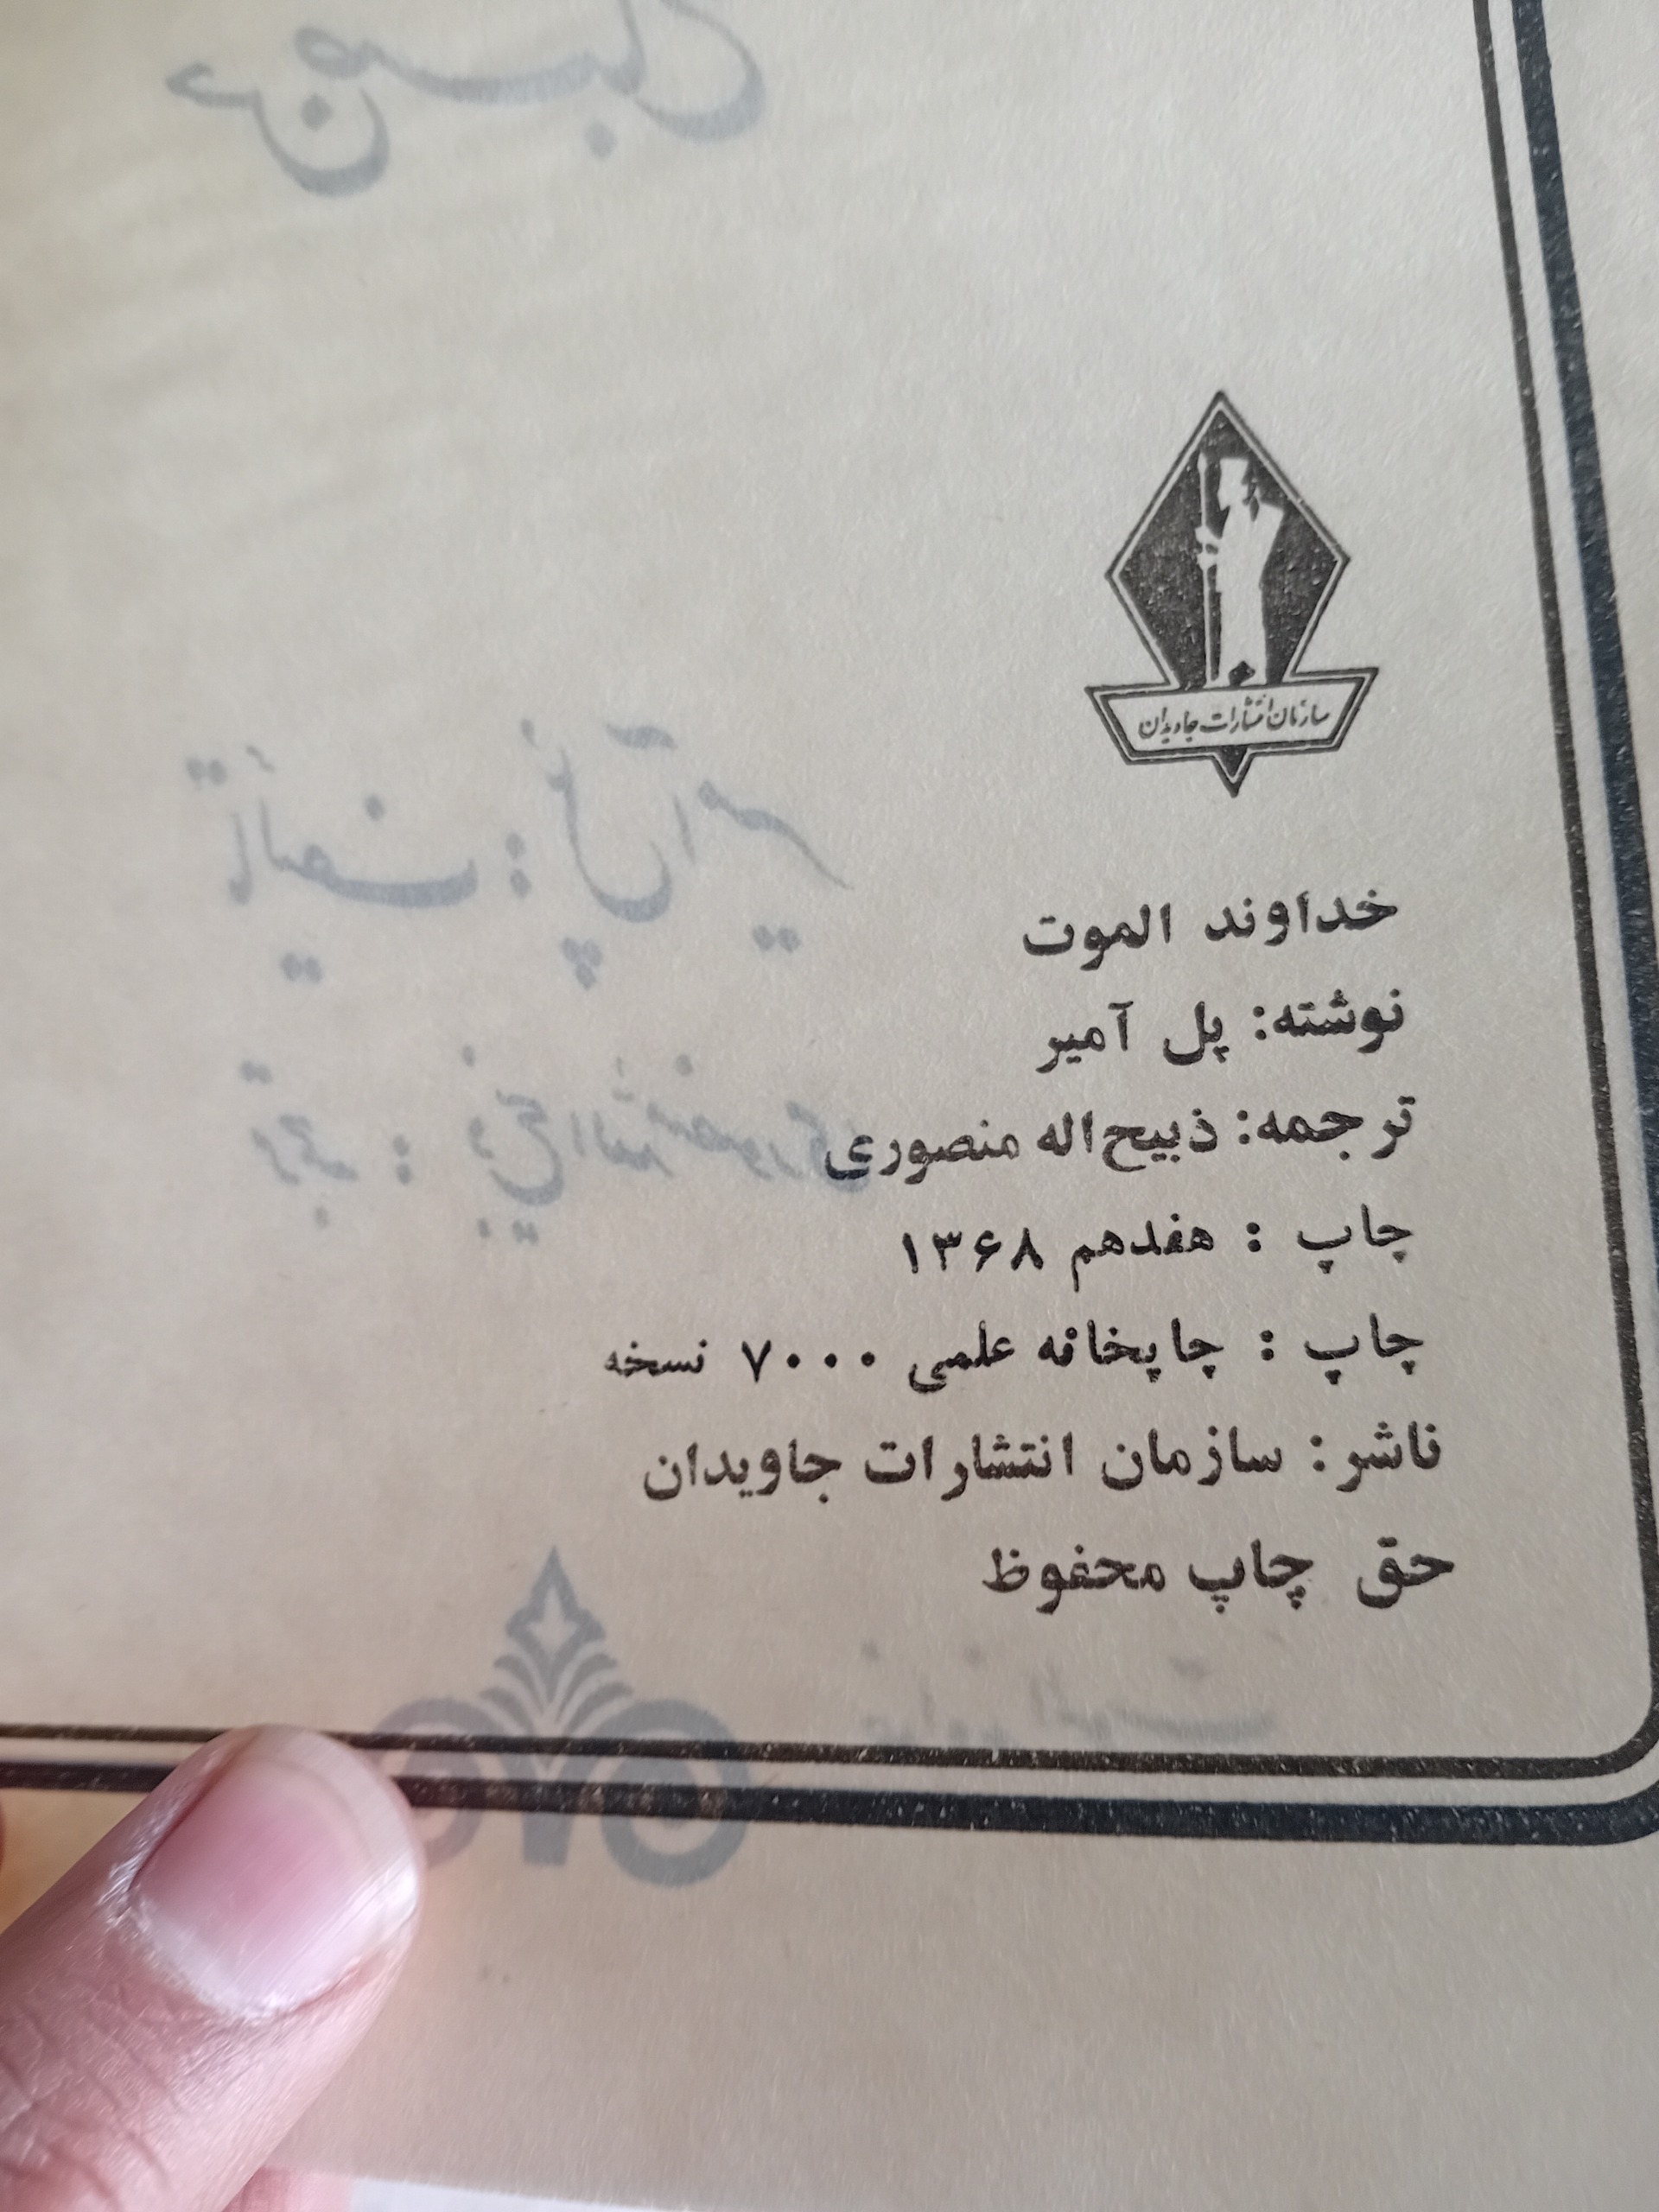 سازمان انتشارات جاویدان
خداوند الموت
نوشته: پل آمیر
ترجمه: ذبیح‌اله منصوری
چاپ : هفدهم ۱۳۶۸
چاپ : چاپخانه علمی ۷۰۰۰ نسخه
ناشر: سازمان انتشارات جاویدان
حق چاپ محفوظ
تألیف : پل آمیر
ترجمه : ذبیح الله منصوری